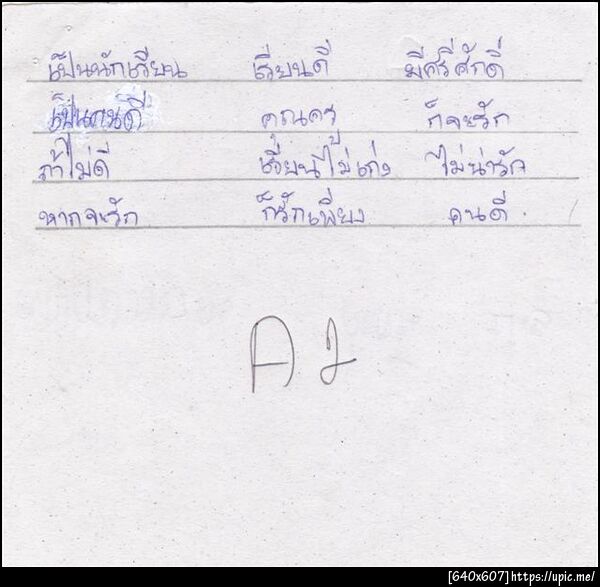 เป็นนักเรียน เรียนดี มีศรีศักดิ์
เป็นคนดี คุณครู ก็จะรัก
ถ้าไม่ดี เรียนไม่เก่ง ไม่น่ารัก
หากจะรัก ก็รักเพียง คนดี
A2
[640x607]https://upic.me/